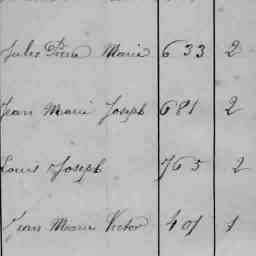 Jules Pierre Marie 633 2
Jean Marie Joseph 681 2
Louis Joseph 765 2
Jean Marie Victor 401 1